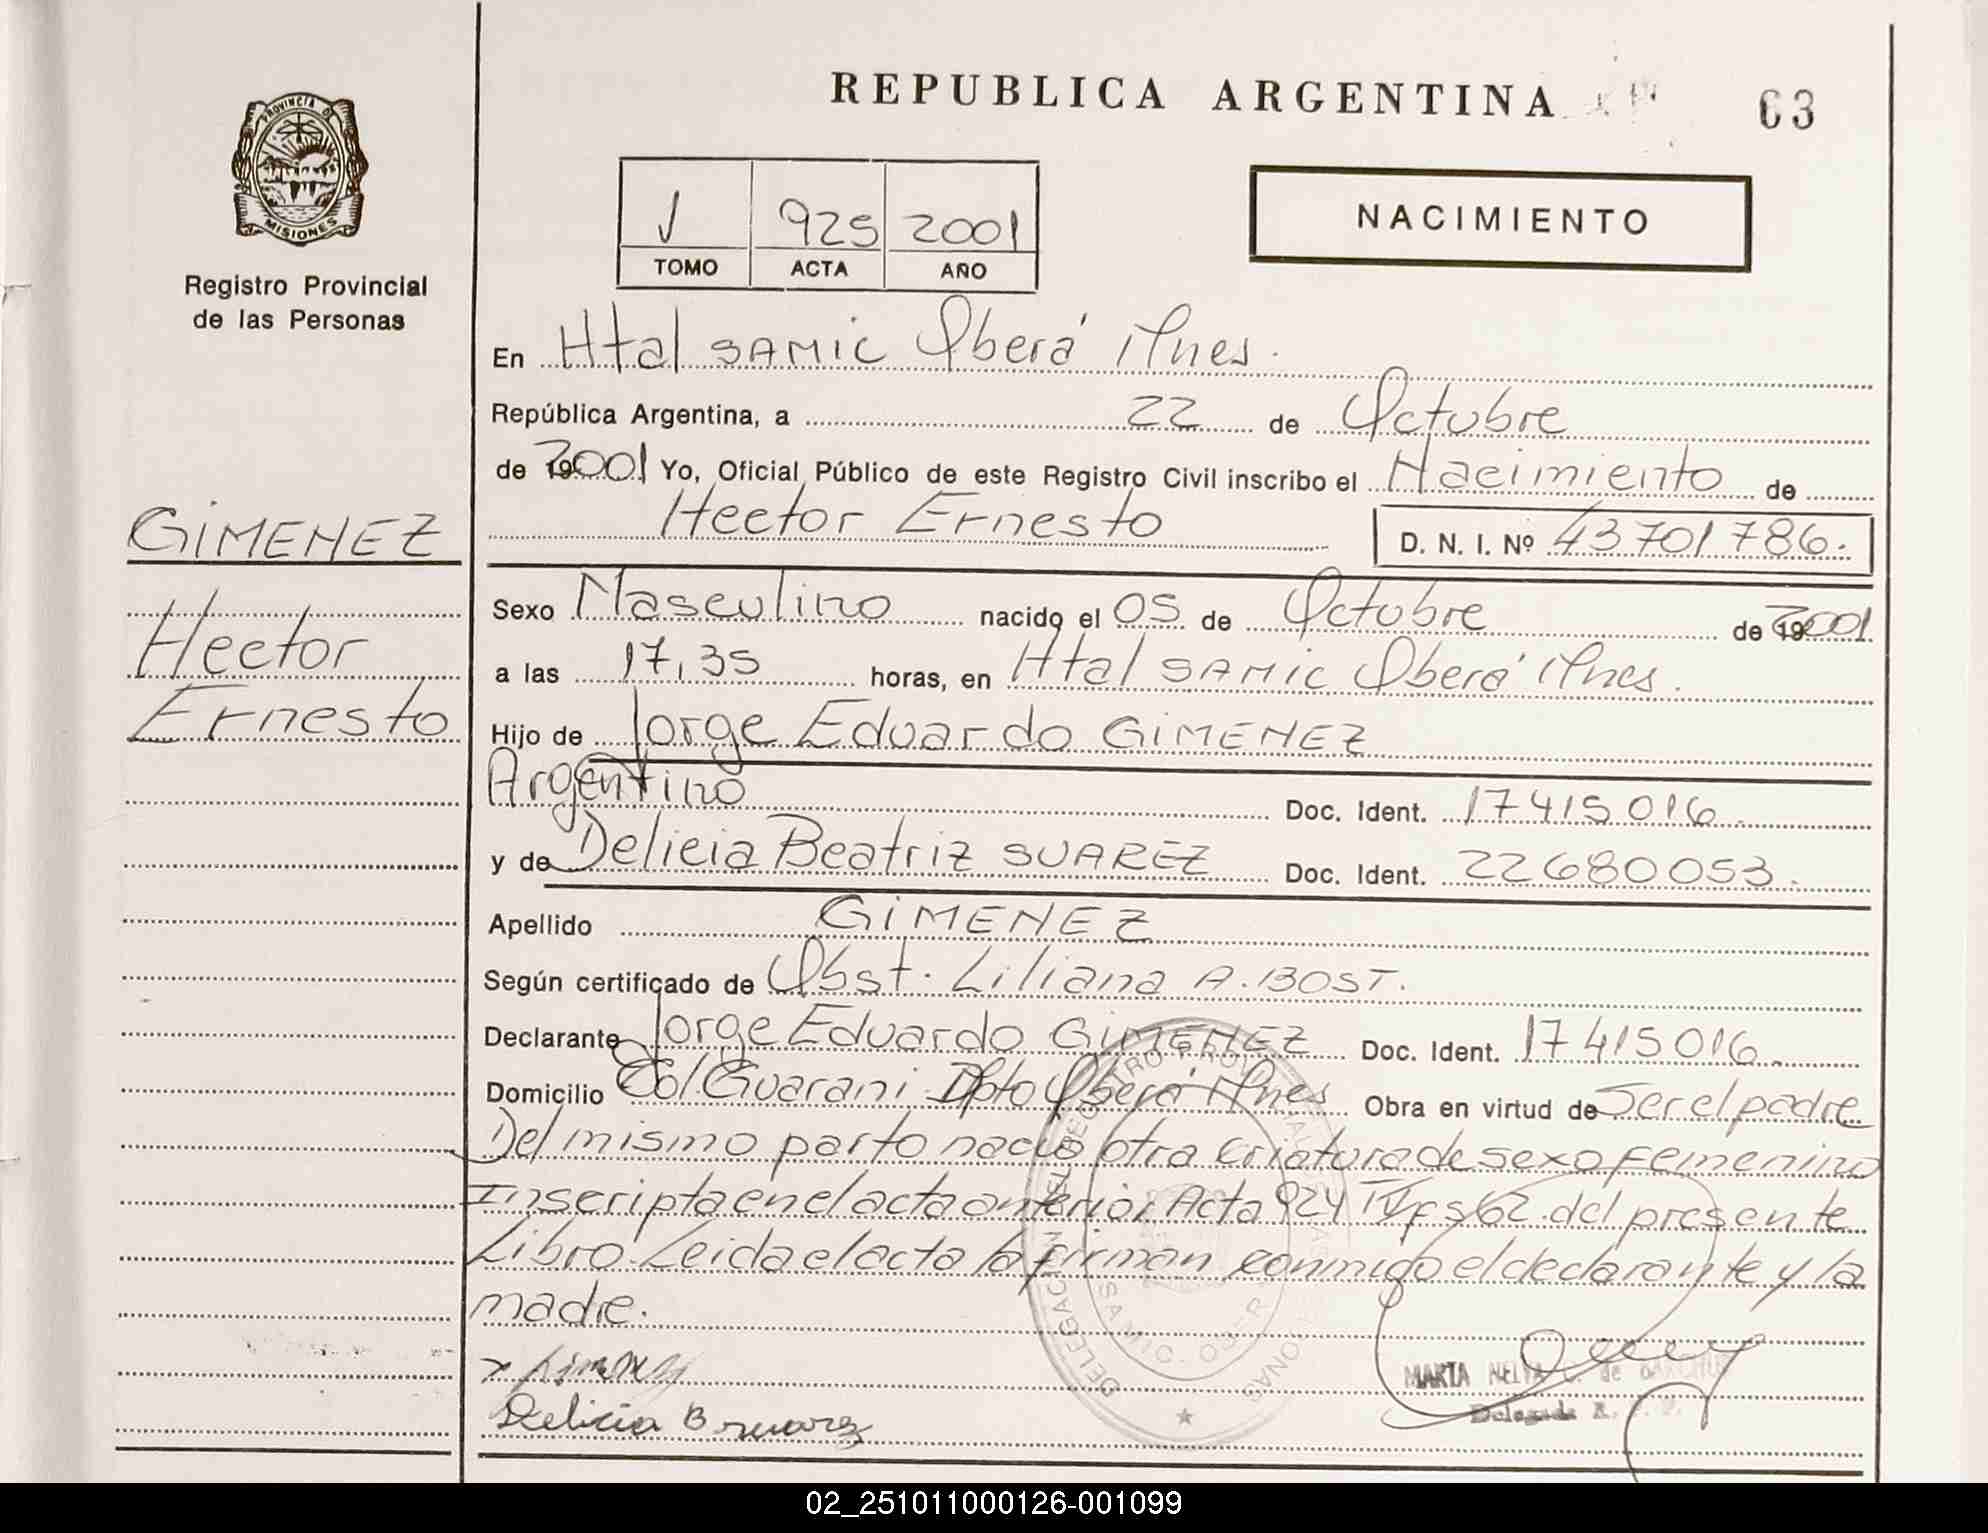 REPUBLICA ARGENTINA
63
PROVINCIA DE
MISIONES
Registro Provincial
de las Personas
V 925 2001
TOMO ACTA AÑO
NACIMIENTO
En Htal SAMIC Oberá Mnes.
República Argentina, a 22 de Octubre
de 2001 Yo, Oficial Público de este Registro Civil inscribo el Nacimiento de
Hector Ernesto D. N. I. Nº 43701786.
GIMENEZ
Hector
Ernesto
Sexo Masculino nacido el 05 de Octubre de 2001
a las 17,35 horas, en Htal SAMIC Oberá Mnes.
Hijo de Jorge Eduardo GIMENEZ
Argentino Doc. Ident. 17415016.
y de Delicia Beatriz SUAREZ Doc. Ident. 22680053.
Apellido GIMENEZ
Según certificado de Obst. Liliana A. BOST.
Declarante Jorge Eduardo GIMENEZ Doc. Ident. 17415016.
Domicilio Col. Guarani Dpto Oberá Mnes Obra en virtud de Ser el padre
Del mismo parto nacio otra criatura de sexo Femenino
Inscripta en el acta anterior Acta 924 TV Fs 62 del presente
Libro. Leida el acta la firman conmigo el declarante y la
madre.
Delicia B Suarez
MARTA NELYA
Delegada R.
02_251011000126-001099